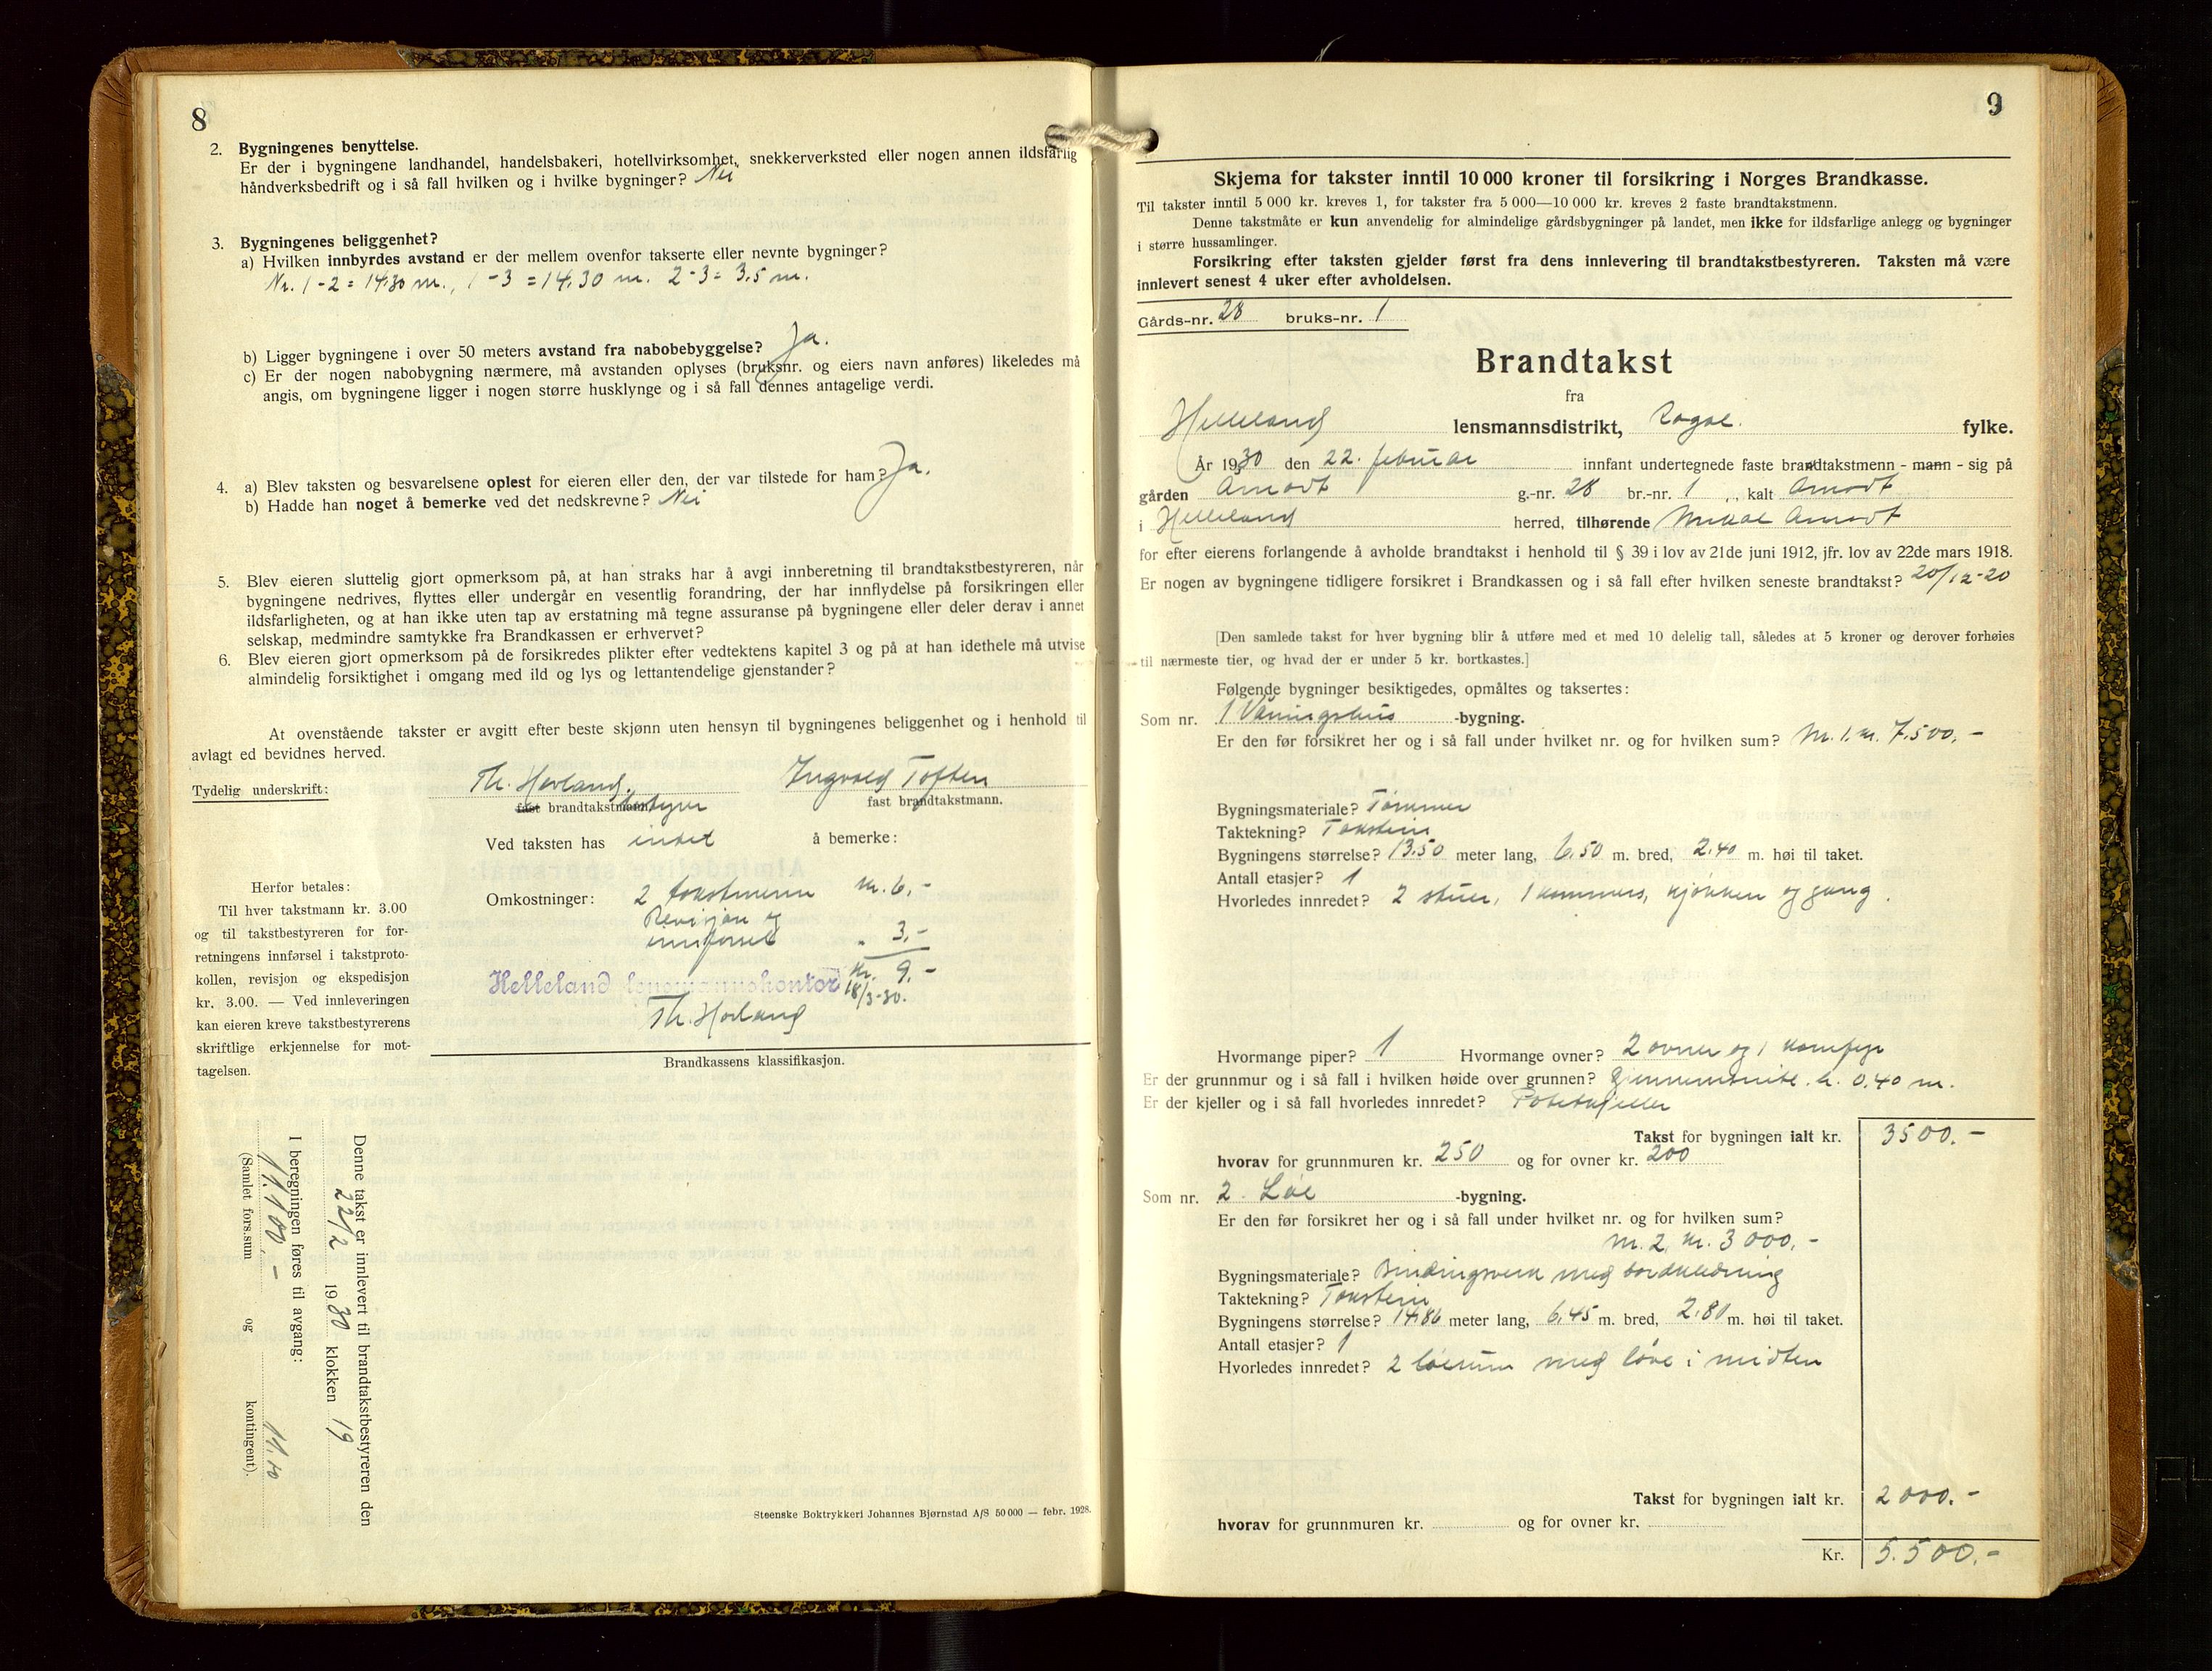 8
2. Bygningenes benyttelse.
Er der i bygningene landhandel, handelsbakeri, hotellvirksomhet, snekkerverksted eller nogen annen ildsfarlig
håndverksbedrift og i så fall hvilken og i hvilke bygninger? Nei
3. Bygningenes beliggenhet?
a) Hvilken innbyrdes avstand er der mellem ovenfor takserte eller nevnte bygninger?
Nr. 1-2 = 14,30 m., 1-3 = 14,30 m. 2-3 = 3,5 m.
b) Ligger bygningene i over 50 meters avstand fra nabobebyggelse? Ja.
c) Er der nogen nabobygning nærmere, må avstanden oplyses (bruksnr. og eiers navn anføres) likeledes må
angis, om bygningene ligger i nogen større husklynge og i så fall dennes antagelige verdi.
4. a) Blev taksten og besvarelsene oplest for eieren eller den, der var tilstede for ham? Ja.
b) Hadde han noget å bemerke ved det nedskrevne? Nei
5. Blev eieren sluttelig gjort opmerksom på, at han straks har å avgi innberetning til brandtakstbestyreren, når
bygningene nedrives, flyttes eller undergår en vesentlig forandring, der har innflydelse på forsikringen eller
ildsfarligheten, og at han ikke uten tap av erstatning må tegne assuranse på bygningene eller deler derav i annet
selskap, medmindre samtykke fra Brandkassen er erhvervet?
6. Blev eieren gjort opmerksom på de forsikredes plikter efter vedtektens kapitel 3 og på at han idethele må utvise
almindelig forsiktighet i omgang med ild og lys og lettantendelige gjenstander?
At ovenstående takster er avgitt efter beste skjønn uten hensyn til bygningenes beliggenhet og i henhold til
avlagt ed bevidnes herved.
Tydelig underskrift: Th. Hovland. Ingvald Toften
fast brandtakstmann bestyrer fast brandtakstmann.
Ved taksten has intet å bemerke:
Omkostninger: 2 takstmenn kr. 6,-
Revisjon og
innførsel " 3,-
Kr. 9,-
Helleland lensmannskontor 18/3-30.
Th. Hovland
Herfor betales:
Til hver takstmann kr. 3.00
og til takstbestyreren for for-
retningens innførsel i takstproto-
kollen, revisjon og ekspedisjon
kr. 3.00. — Ved innleveringen
kan eieren kreve takstbestyrerens
skriftlige erkjennelse for mot-
tagelsen.
Brandkassens klassifikasjon.
Denne takst er innlevert til brandtakstbestyreren den
22/2 1930 klokken 19
I beregningen føres til avgang:
11.100,- 11.10
(Samlet fors.sum og kontingent).
Steenske Boktrykkeri Johannes Bjørnstad A/S 50 000 — febr. 1928.
9
Skjema for takster inntil 10 000 kroner til forsikring i Norges Brandkasse.
Til takster inntil 5 000 kr. kreves 1, for takster fra 5 000—10 000 kr. kreves 2 faste brandtakstmenn.
Denne takstmåte er kun anvendelig for almindelige gårdsbygninger på landet, men ikke for ildsfarlige anlegg og bygninger
i større hussamlinger.
Forsikring efter taksten gjelder først fra dens innlevering til brandtakstbestyreren. Taksten må være
innlevert senest 4 uker efter avholdelsen.
Gårds-nr. 28 bruks-nr. 1
Brandtakst
fra
Helleland lensmannsdistrikt, Rogal. fylke.
År 1930 den 22. februar innfant undertegnede faste brandtakstmenn - mann - sig på
gården Amodt g.-nr. 28 br.-nr. 1 ,, kalt Amodt
i Helleland herred, tilhørende Mikal Amodt
for efter eierens forlangende å avholde brandtakst i henhold til § 39 i lov av 21de juni 1912, jfr. lov av 22de mars 1918.
Er nogen av bygningene tidligere forsikret i Brandkassen og i så fall efter hvilken seneste brandtakst? 20/12-20
[Den samlede takst for hver bygning blir å utføre med et med 10 delelig tall, således at 5 kroner og derover forhøies
til nærmeste tier, og hvad der er under 5 kr. bortkastes.]
Følgende bygninger besiktigedes, opmåltes og taksertes:
Som nr. 1 Våningshus -bygning.
Er den før forsikret her og i så fall under hvilket nr. og for hvilken sum? Nr. 1. kr. 7.500,-
Bygningsmateriale? Tømmer
Taktekning? Takstein
Bygningens størrelse? 13.50 meter lang, 6.50 m. bred, 2.40 m. høi til taket.
Antall etasjer? 1
Hvorledes innredet? 2 stuer, 1 kammers, kjøkken og gang.
Hvormange piper? 1 Hvormange ovner? 2 ovner og 1 komfyr
Er der grunnmur og i så fall i hvilken høide over grunnen? Gjennemsnitl. h. 0.40 m.
Er der kjeller og i så fall hvorledes innredet? Potetkjeller
Takst for bygningen ialt kr. 3500.-
hvorav for grunnmuren kr. 250 og for ovner kr. 200
Som nr. 2. Løe -bygning.
Er den før forsikret her og i så fall under hvilket nr. og for hvilken sum?
nr. 2. kr. 3000,-
Bygningsmateriale? Bindingsverk med bordkledning
Taktekning? Takstein
Bygningens størrelse? 14.86 meter lang, 6.45 m. bred, 2.80 m. høi til taket.
Antall etasjer? 1
Hvorledes innredet? 2 løerum med løve i midten
Takst for bygningen ialt kr. 2000.-
hvorav for grunnmuren kr. og for ovner kr.
Kr. 5.500.-